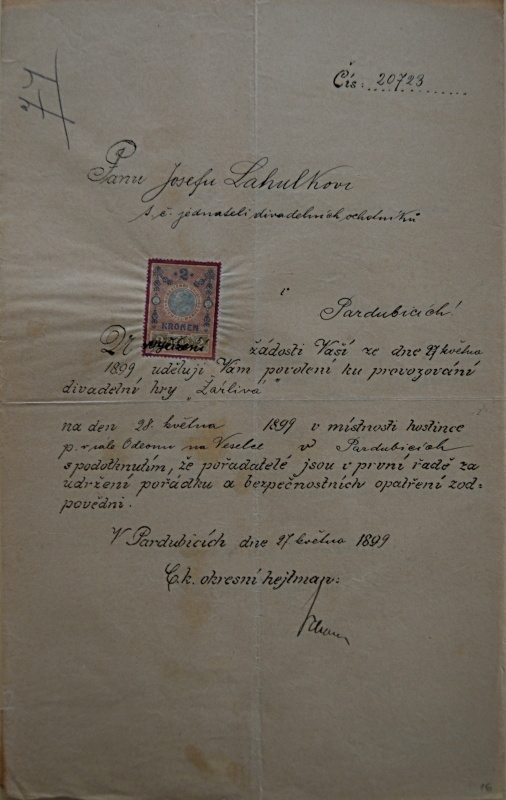 77
Čís: 20723
Panu Josefu Lahulkovi
t. č. jednateli divadelních ochotníků
v
Pardubicích!
2
KRONEN
žádosti Vaší ze dne 27 května
1899 uděluji Vám povolení ku provozování
divadelní hry „Žárlivá"
na den 28. května 1899 v místnosti hostince
p. v sale Odeonu na Veselce v Pardubicích
s podotknutím, že pořadatelé jsou v první řadě za
udržení pořádku a bezpečnostních opatření zod-
povědni.
V Pardubicích dne 27. května 1899
C. k. okresní hejtman:
16